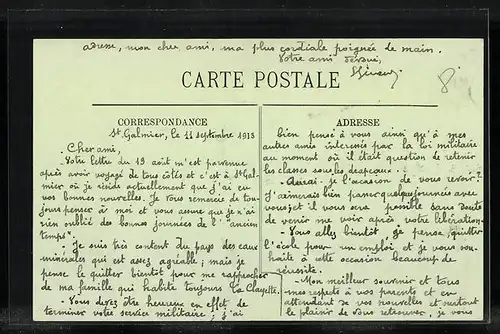 adresse, mon cher ami, ma plus cordiale poignée de main.
Votre ami dévoué,
CARTE POSTALE
CORRESPONDANCE
St Galmier, le 11 septembre 1913
Cher ami,
- Votre lettre du 19 août m'est parvenue
après avoir voyagé de tous côtés et c'est à St Gal-
mier où je réside actuellement que j'ai eu
vos bonnes nouvelles. Je vous remercie de tou-
jours penser à moi et vous assure que je n'ai
rien oublié des bonnes journées de l'"ancien
temps".
- Je suis très content du pays des eaux
minérales qui est assez agréable ; mais je
pense le quitter bientôt pour me rapprocher
de ma famille qui habite toujours la Clayette.
- Vous devez être heureux en effet de
terminer votre service militaire ; j'ai
ADRESSE
bien pensé à vous ainsi qu'à mes
autres amis intéressés par la loi militaire
au moment où il était question de retenir
les classes sous les drapeaux.
- Aurai-je l'occasion de vous revoir ?
J'aimerais bien passer quelques journées avec
vous et il vous sera possible sans doute
de venir me voir après votre libération.
- Vous allez bientôt je pense, quitter
l'école pour un emploi, et je vous sou-
haite à cette occasion beaucoup de
réussite.
- Mon meilleur souvenir et tous
mes respects à vos parents et en
attendant de vos nouvelles et surtout
le plaisir de vous retrouver, je vous